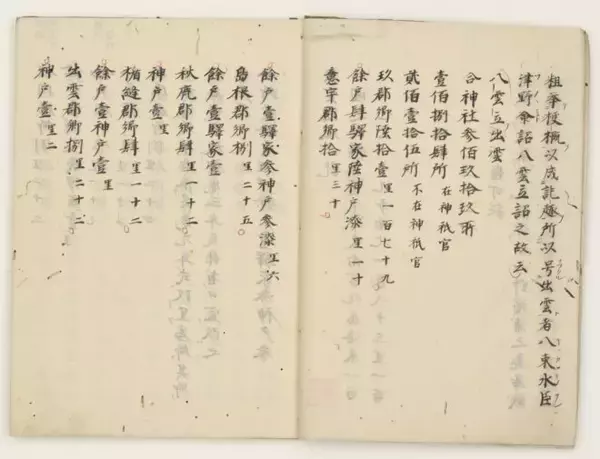 粗挙梗概以成記趣所以号出雲者八束水臣
津野命詔八雲立詔之故云
八雲立出雲
合神社叅佰玖拾玖所
壹佰捌拾肆所 在神祇官
貳佰壹拾伍所 不在神祇官
玖郡郷陸拾壹 里一百七十九
餘戸肆驛家陸神戸漆 里一十
意宇郡郷拾 里三十
餘戸壹驛家叅神戸叅漆 里六
島根郡郷捌 里二十五
餘戸壹驛家壹
秋鹿郡郷肆 里一十二
神戸壹 里
楯縫郡郷肆 里一十二
餘戸壹神戸壹 里
出雲郡郷捌 里二十二
神戸壹 里二